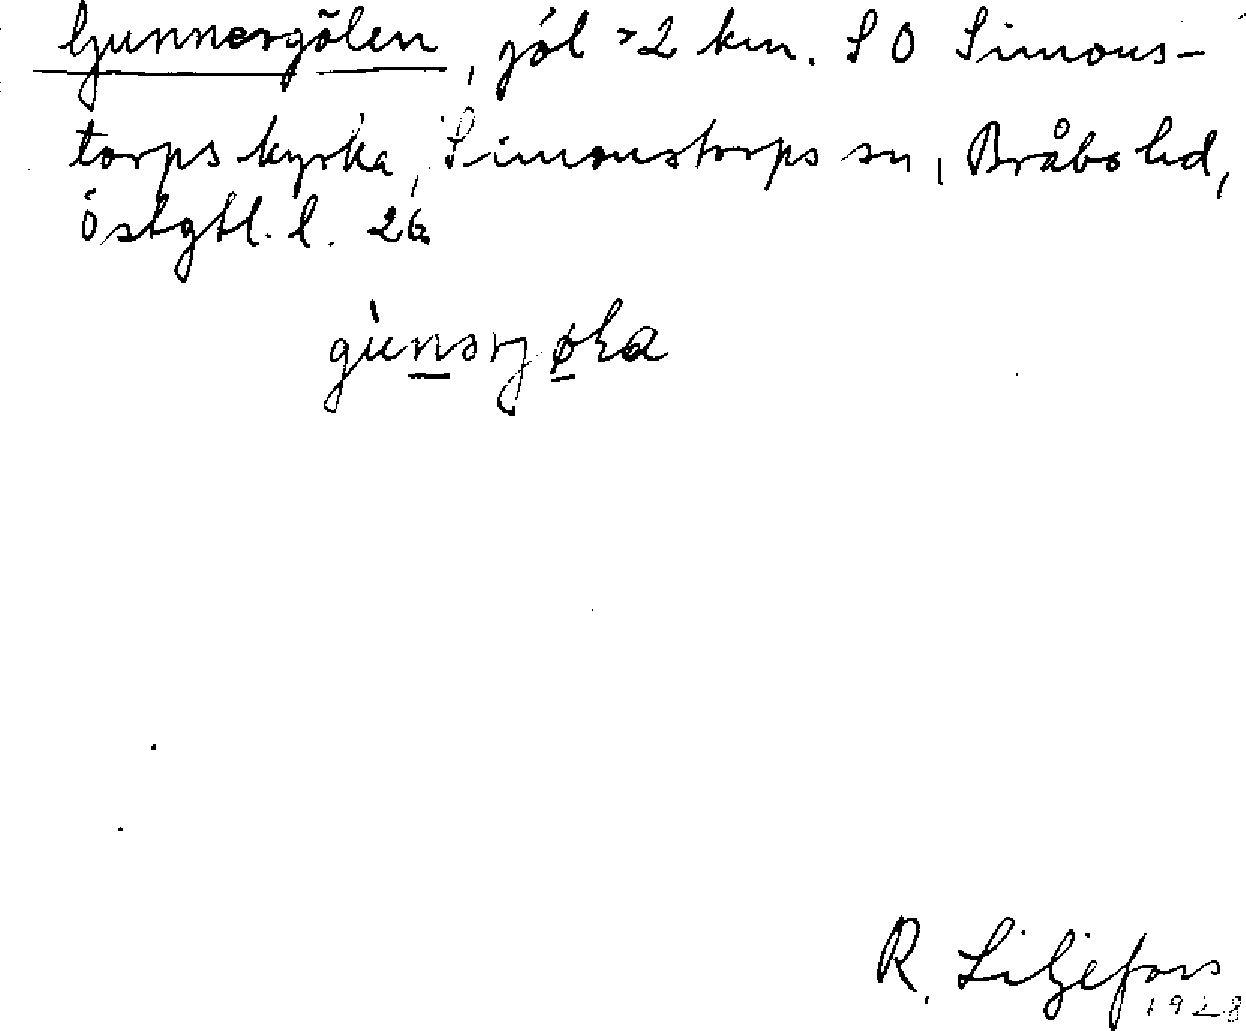 Gunnersgölen, göl >2 km. S O Simons-
torps kyrka, Simonstorps sn, Bråbo hd,
Östgtl. l. 26
R. Liljefors
1928